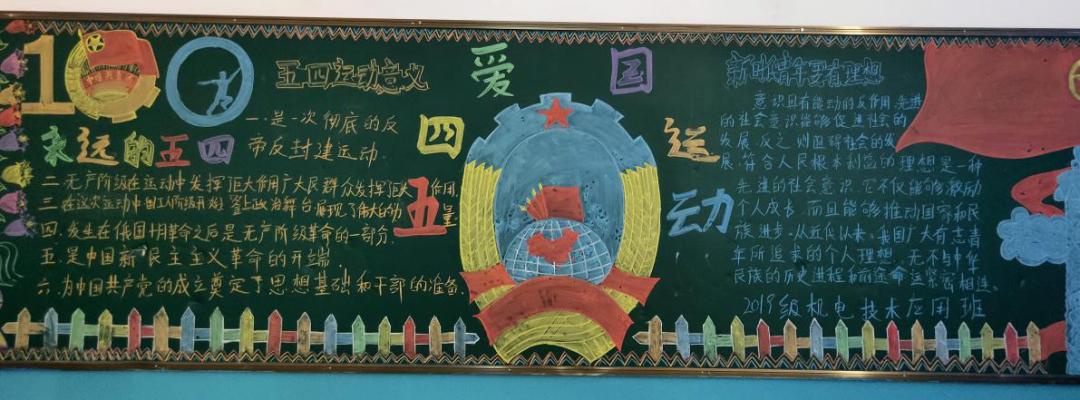 100
永远的五四
五四运动意义
一.是一次彻底的反
帝反封建运动
二.无产阶级在运动中发挥巨大作用广大民群众发挥巨大作用.
三.在这次运动中国工人阶级开始登上政治舞台展现了伟大的力量
四.发生在俄国十月革命之后是无产阶级革命的一部分.
五.是中国新民主主义革命的开端.
六.为中国共产党的成立奠定了思想基础和干部的准备.
爱国
五四运动
新时代青年要有理想
意识具有能动的反作用.先进
的社会意识能够促进社会的
发展.反之则阻碍社会的发
展.符合人民根本利益的理想是一种
先进的社会意识.它不仅能够激励
个人成长.而且能够推动国家和民
族进步.从近代以来.我国广大有志青
年所追求的个人理想.无不与中华
民族的历史进程和前途命运紧密相连。
2019级机电技术应用班